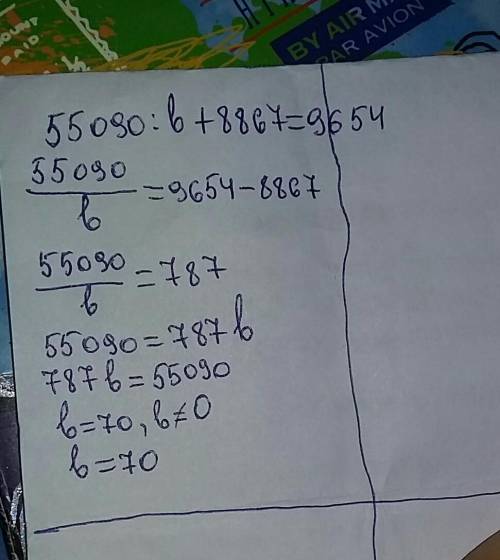 BY AIR MA
PAR AVION
55090:b+8867=9654
55090/b=9654-8867
55090/b=787
55090=787b
787b=55090
b=70, b≠0
b=70